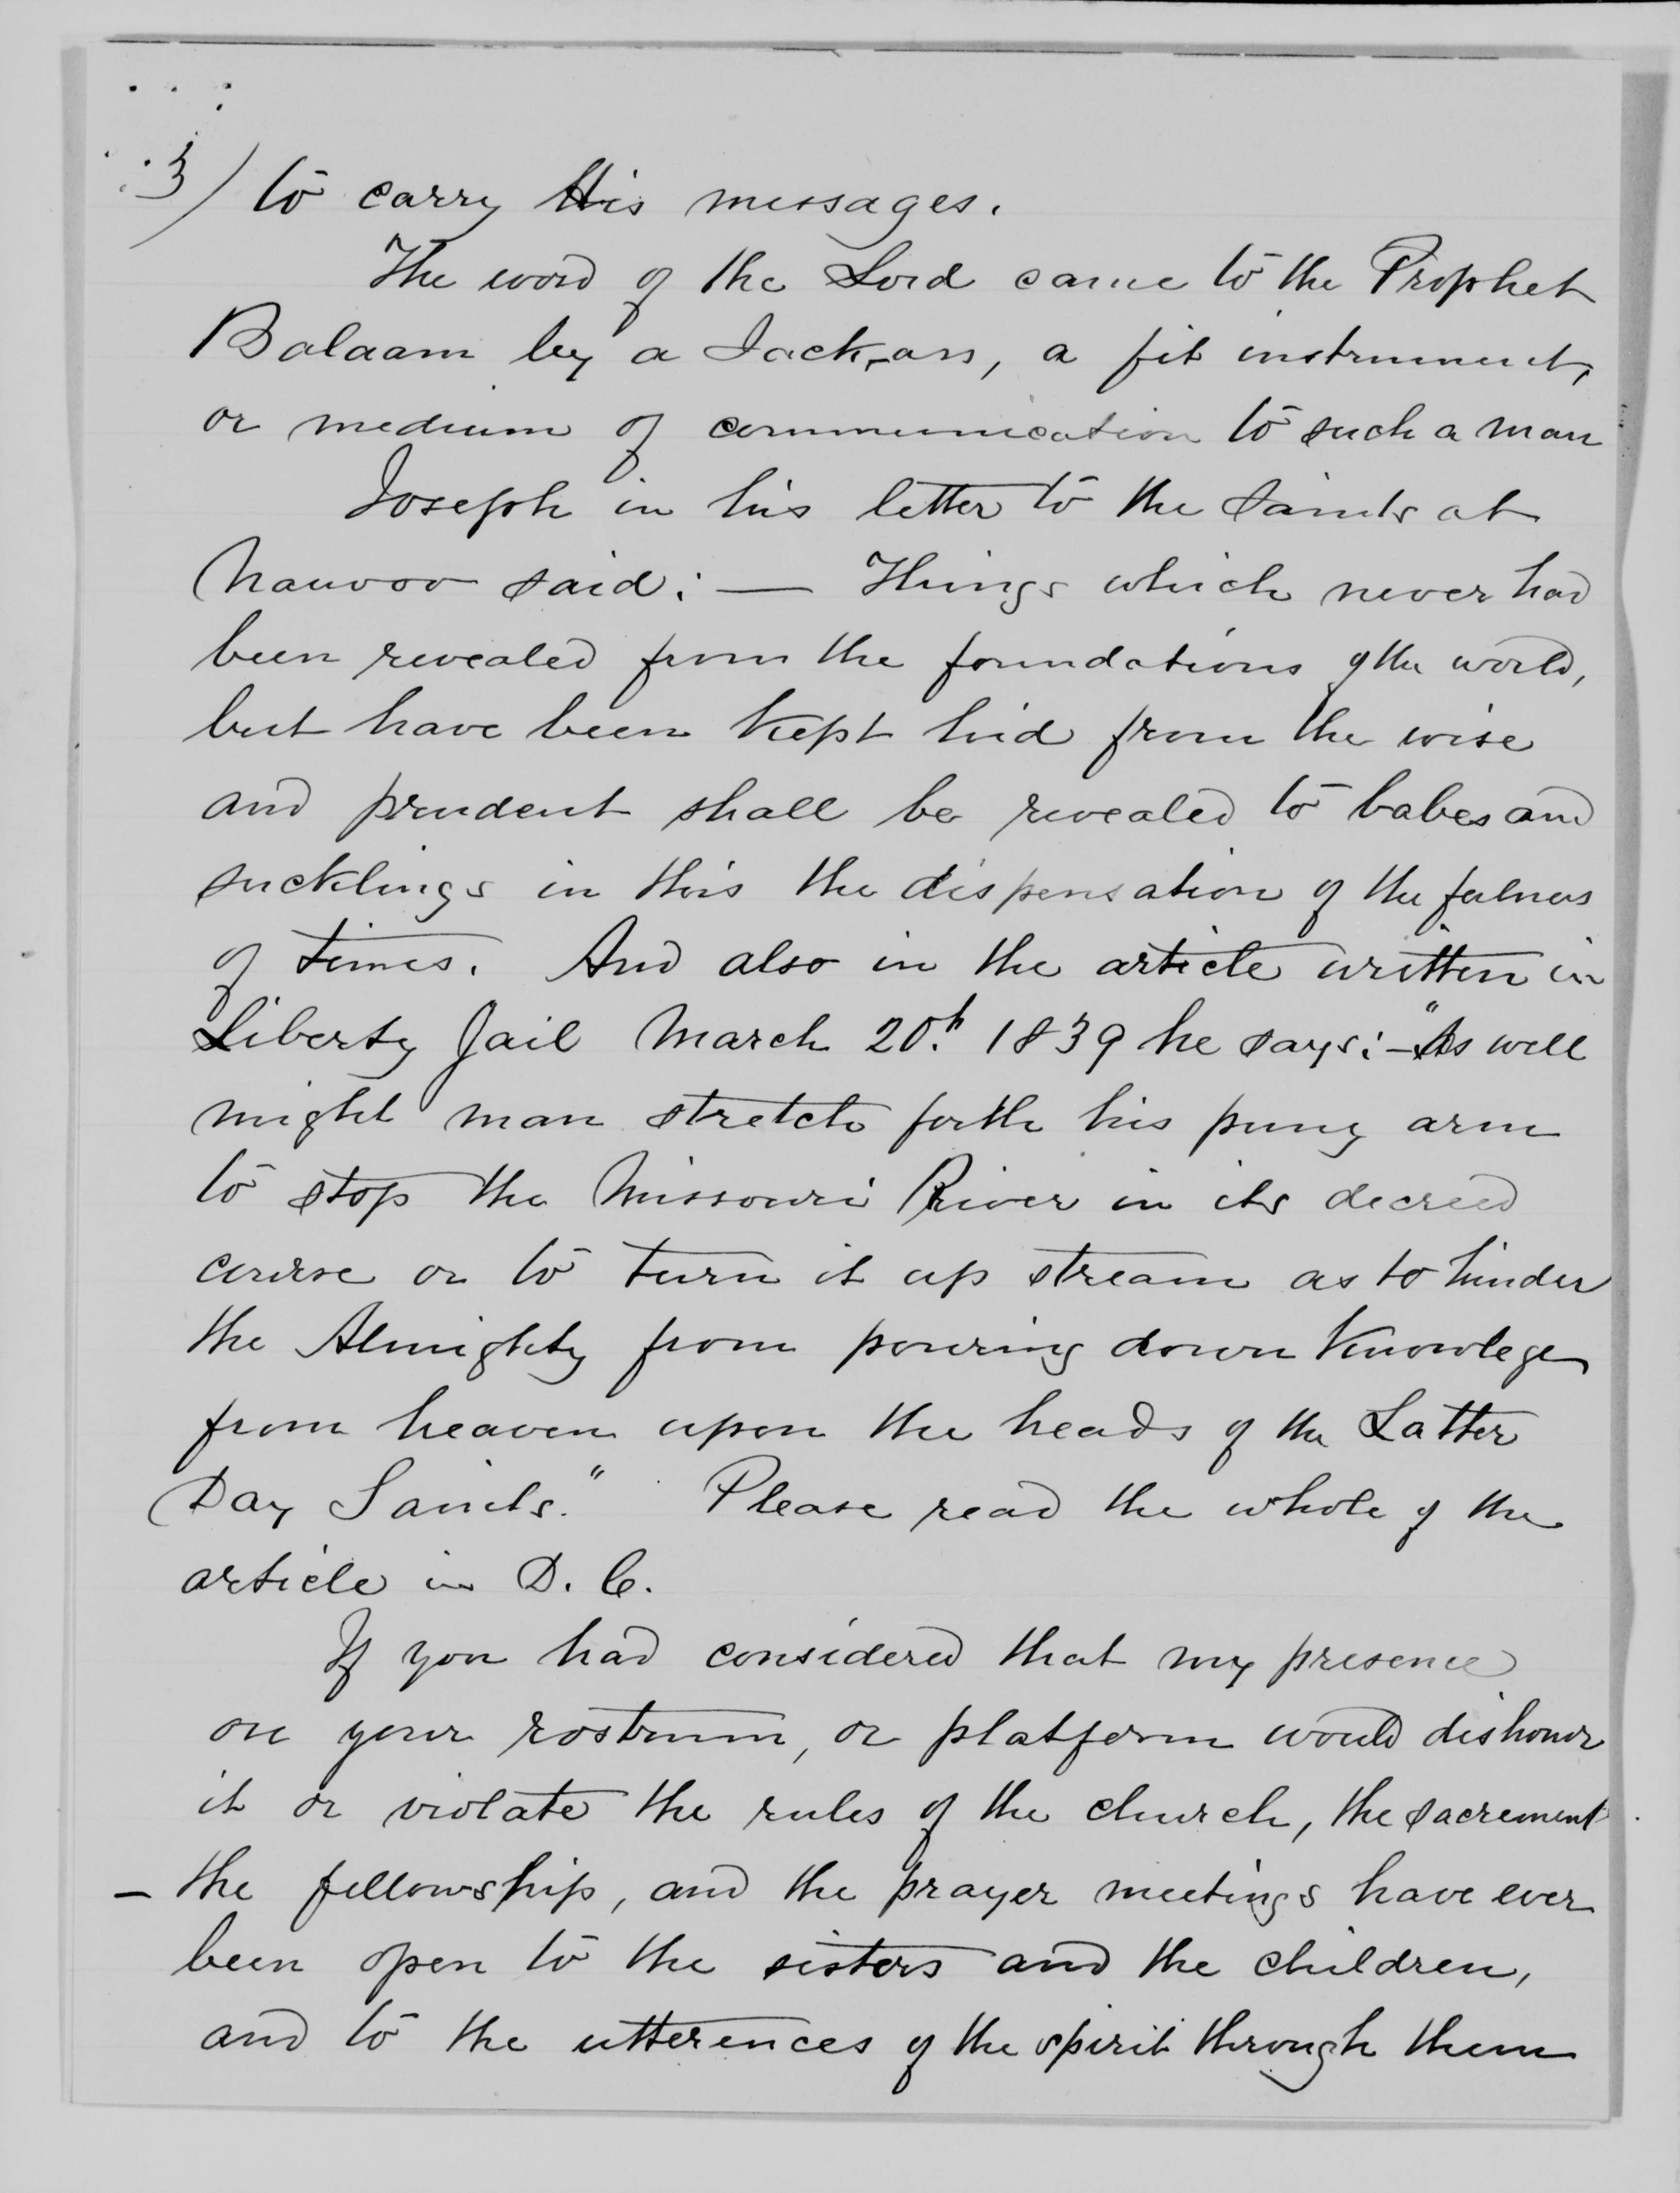 3) to carry His messages.
The word of the Lord came to the Prophet
Balaam by a Jack-ass, a fit instrument,
or medium of communication to such a man
Joseph in his letter to the Saints at
Nauvoo said: — Things which never had
been revealed from the foundations of the world,
but have been kept hid from the wise
and prudent shall be revealed to babes and
sucklings in this the dispensation of the fulness
of times. And also in the article written in
Liberty Jail March 20th 1839 he says: — "As well
might man stretch forth his puny arm
to stop the Missouri River in its decreed
course or to turn it up stream as to hinder
the Almighty from pouring down knowlege
from heaven upon the heads of the Latter
Day Saints." Please read the whole of the
article in D. C.
If you had considered that my presence
on your rostrum, or platform would dishonor
it or violate the rules of the church, the sacrement
– the fellowship, and the prayer meetings have ever
been open to the sisters and the children,
and to the utterences of the spirit through them